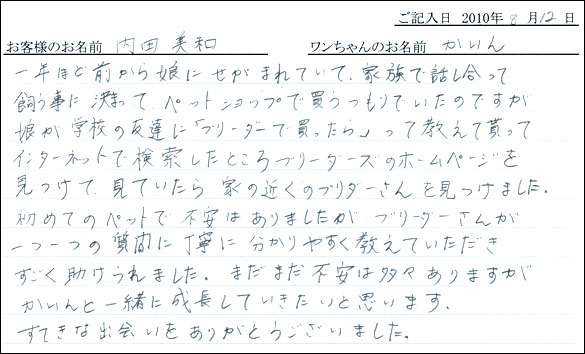 ご記入日 2010年 8 月 12 日
お客様のお名前 内田 美和 ワンちゃんのお名前 かいん
一年ほど前から娘にせがまれていて、家族で話し合って
飼う事に決まって、ペットショップで買うつもりでいたのですが
娘が学校の友達に「ブリーダーで買ったら」って教えて貰って
インターネットで検索したところブリーダーズのホームページを
見つけて、見ていたら家の近くのブリダーさんを見つけました。
初めてのペットで不安はありましたがブリーダーさんが
一つ一つの質問に丁寧に分かりやすく教えていただき
すごく助けられました。まだまだ不安は多々ありますが
かいんと一緒に成長していきたいと思います。
すてきな出会いをありがとうございました。